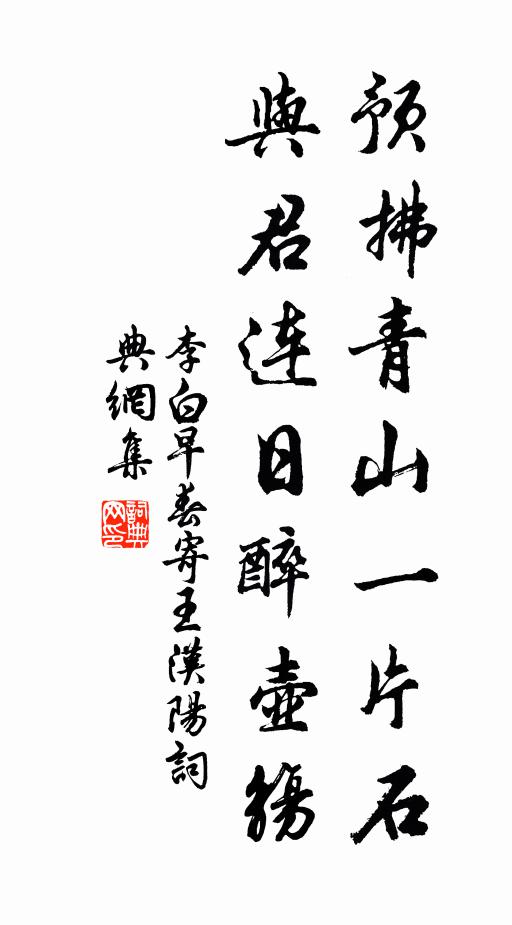 預拂青山一片石
與君連日醉壺觴
李白早春寄王漢陽詞
典網集
詞典網印